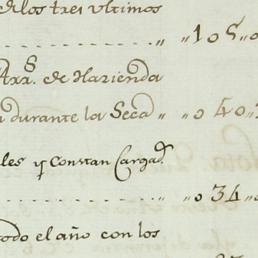 de los tres ultimos
„ „ 1 0 5 „
de Hazienda
durante la Seca „ „ 0 4 0
les y Constan Cargad.
„ „ 0 3 4 „
todo el año con los